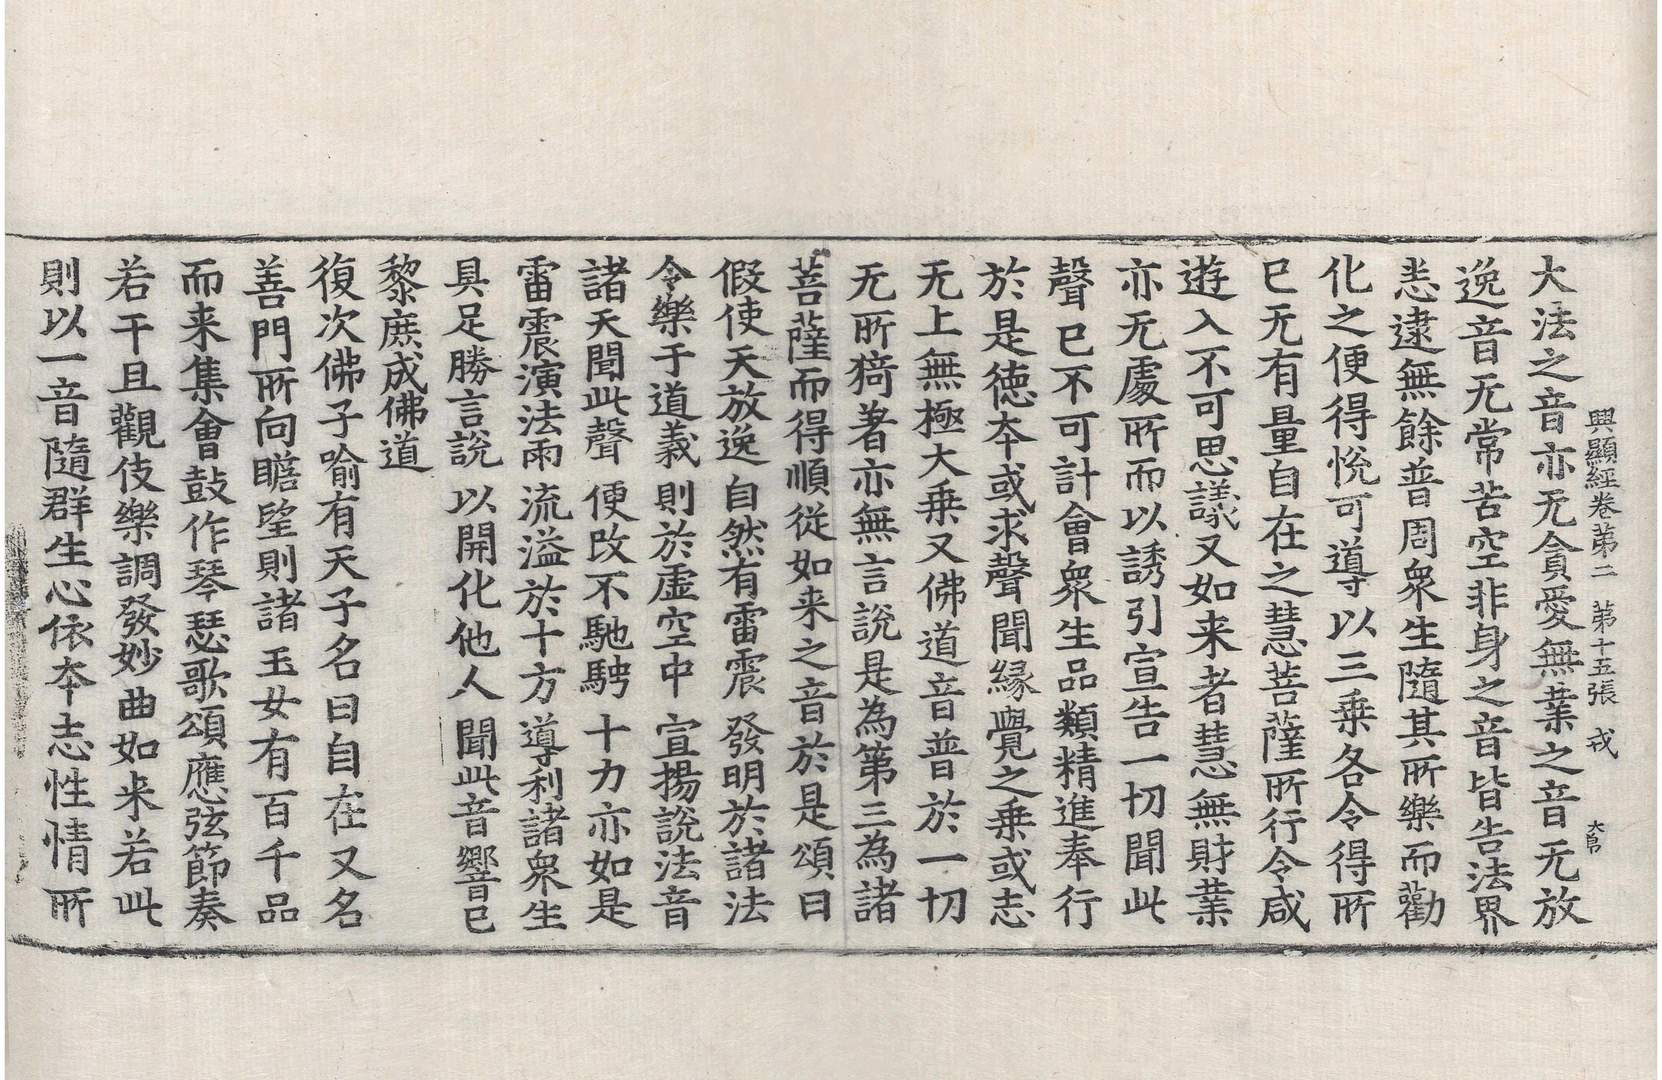 興顯經卷苐二 苐十五張 戎 大官
大法之音亦无貪愛無業之音无放
逸音无常苦空非身之音皆告法界
恚逮無餘普周衆生隨其所樂而勸
化之便得悅可導以三乗各令得所
已无有量自在之慧菩薩所行令咸
遊入不可思議又如来者慧無財業
亦无處所而以誘引宣告一切聞此
聲已不可計會衆生品類精進奉行
於是徳夲或求聲聞緣覺之乗或志
无上無極大乗又佛道音普於一切
无所猗著亦無言說是為第三為諸
菩薩而得順從如来之音於是頌曰
假使天放逸 自然有雷震 發明於諸法
令樂于道義 則於虛空中 宣揚說法音
諸天聞此聲 便改不馳騁 十力亦如是
雷震演法雨 流溢於十方 導利諸衆生
具足勝言說 以開化他人 聞此音響已
黎庶成佛道
復次佛子喻有天子名曰自在又名
善門所向瞻望則諸玉女有百千品
而来集會鼓作琴瑟歌頌應弦節奏
若干且觀伎樂調發妙曲如来若此
則以一音隨群生心依夲志性情所